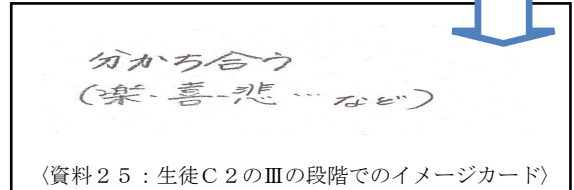 分かち合う
(楽・喜・悲…など)
〈資料２５：生徒Ｃ２のⅢの段階でのイメージカード〉